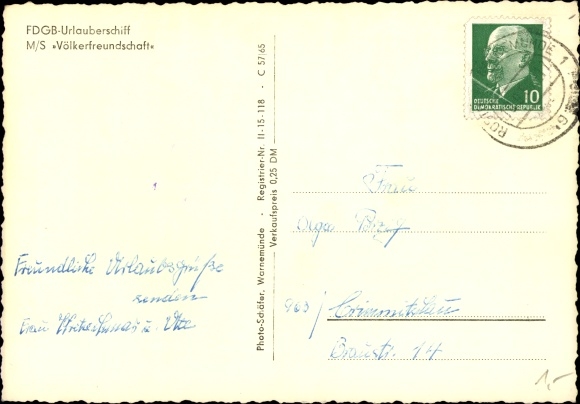 FDGB-Urlauberschiff
M/S »Völkerfreundschaft«
DEUTSCHE
DEMOKRATISCHE REPUBLIK
10
Photo-Schäfer, Warnemünde · Registrier-Nr. II-15-118 · C 57/65
Verkaufspreis 0,25 DM
Frau
Olga
Freundliche Urlaubsgrüße
senden
Frau u. Ute
963 / Crimmitschau
Braustr. 14
1,-